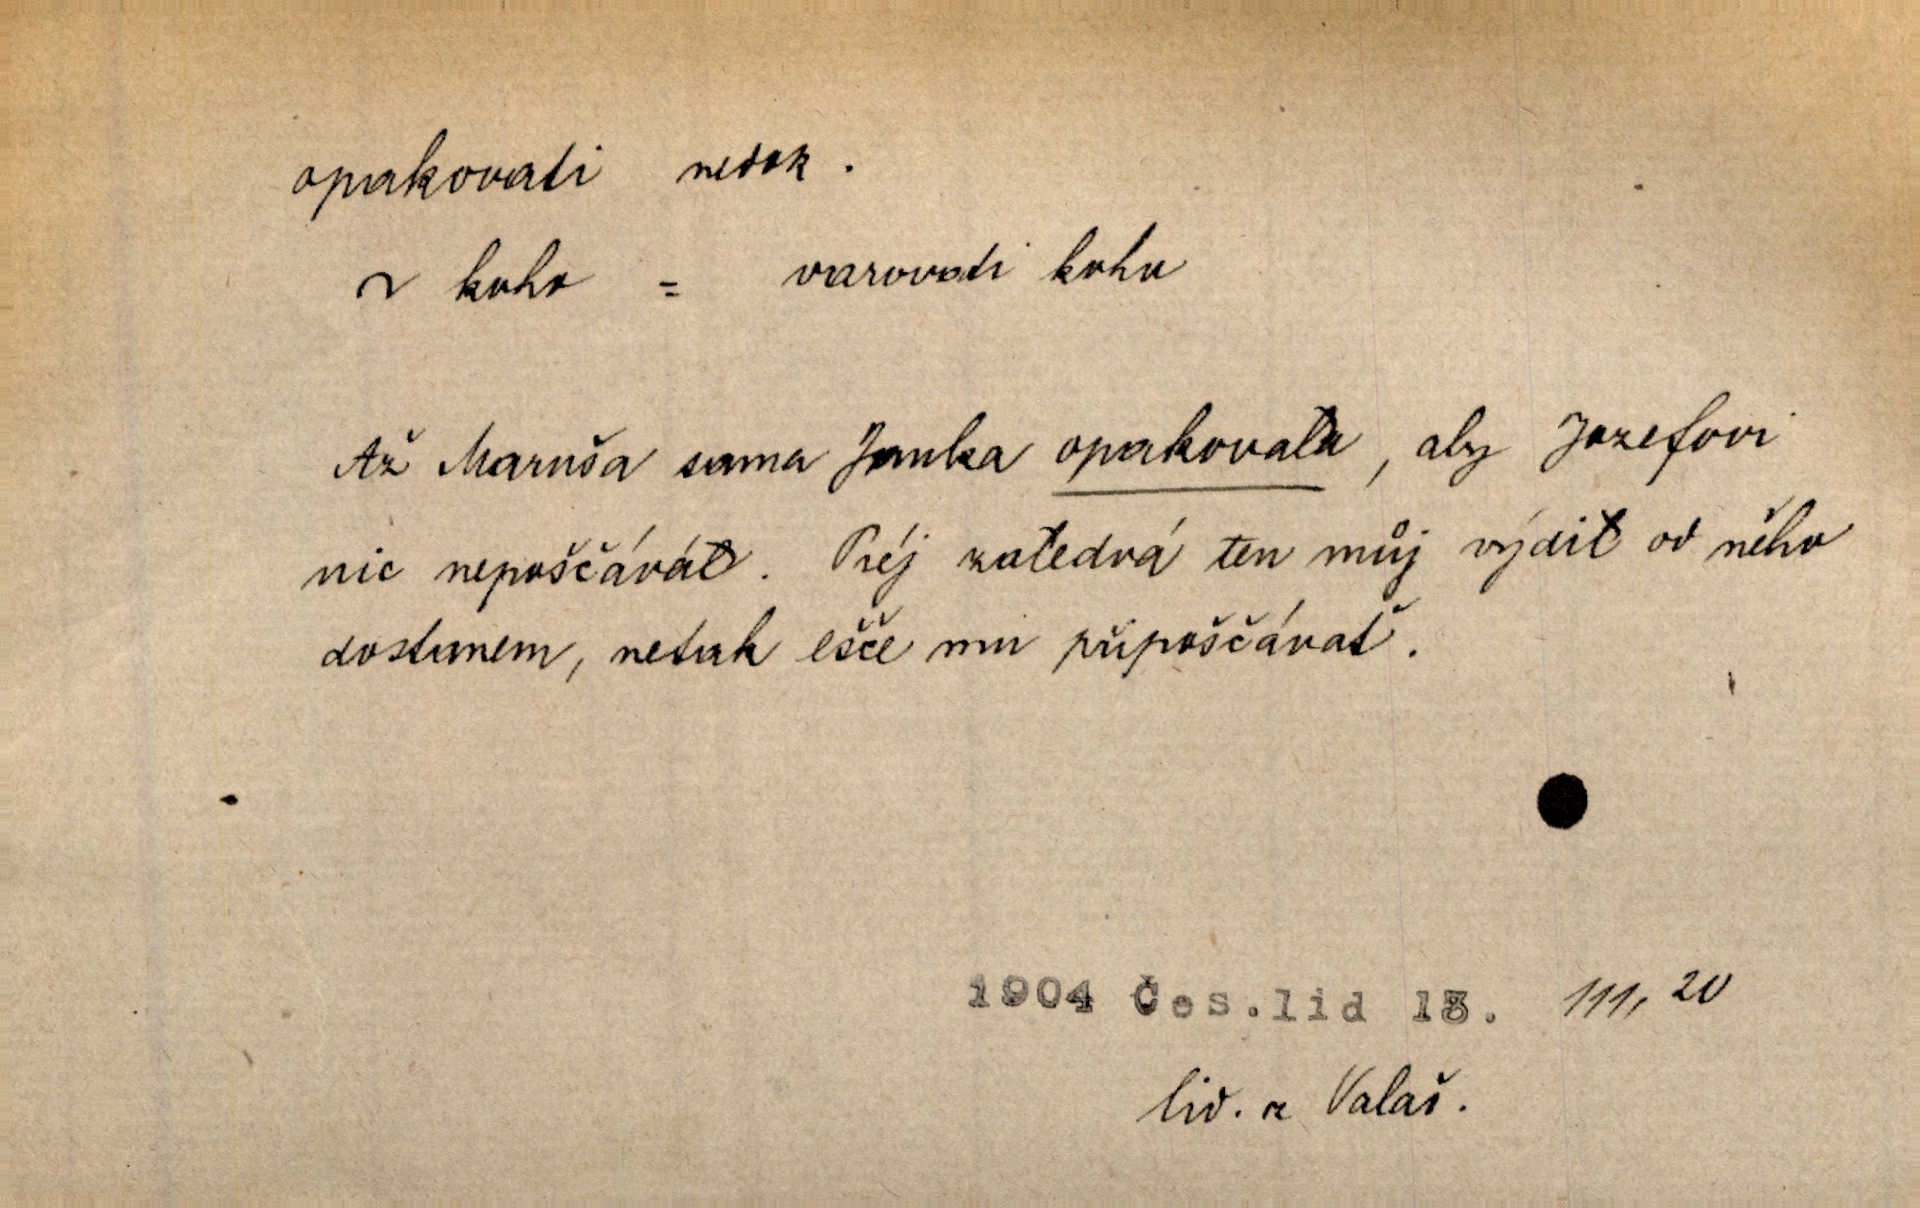 opakovati nedok.
~ koho = varovati koho
Až Maruša sama Janka opakovała, aby Jozefovi
nic nepoščáváł. Préj załedvá ten můj výdił od něho
dostanem, netak ešče mu připoščávať.
1904 Čes.lid 13. 111, 20
lid. z Valaš.